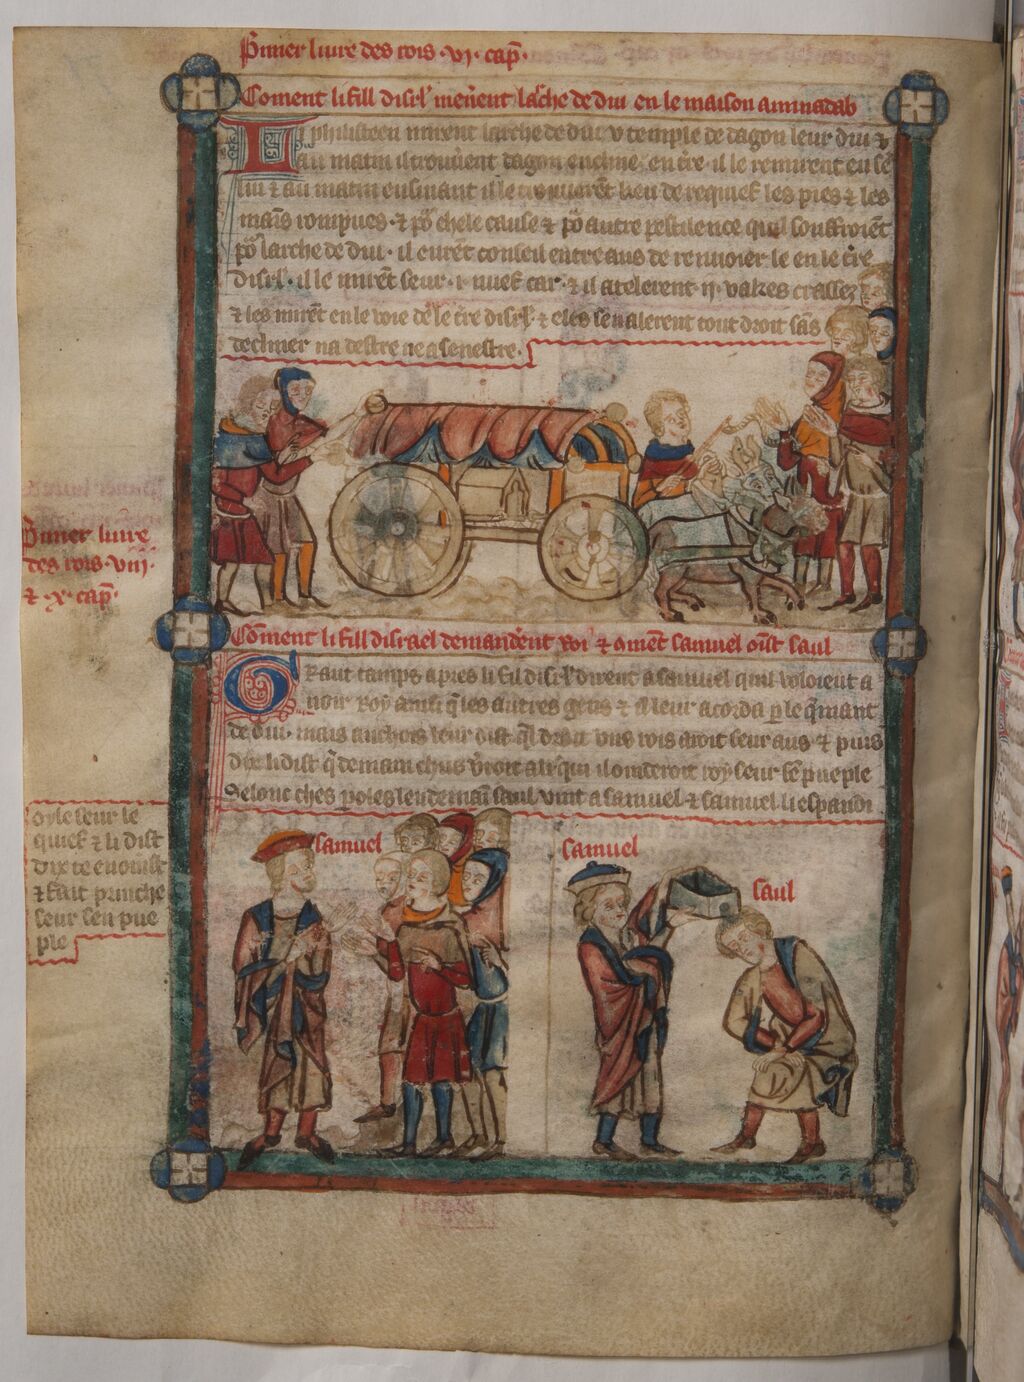 P̃mier liure des rois ·vj· cap̃·
Coment li fill disrl' menent larche de diu en le maison aminadab
Li philisteen mirent larche de diu v temple de dagon leur diu ⁊
au matin il trouuerent dagon encline en tre· il le remirent en sē
liu ⁊ au matin ensiuant il le trouuerēt lieu de requief les pies ⁊ les
mais̃ rompues· ⁊ p̃o chele cause ⁊ p̃o autre pestilence quil souffroiēt
p̃o larche de diu· il eurēt conseil entre aus de renuoier le en le tr̃e
disrl'· il le mirēt seur ·i· nuef car· ⁊ il atelerent ·ij· vakes crasses
⁊ les mirēt en le voie de le tr̃e disrl' ⁊ eles sen alerent tout droit sās
decliner na destre ne a senestre·
P̃mier liure
des rois ·viij·
⁊ ·x· cap̃·
Cōment li fill disrael demanderent roi ⁊ cōment samuel oīst saul
Graut tamps apres li fil disrl' dirent a samuel quil voloient a
uoir roy ausi q̃ les autres gens ⁊ il leur acorda p le q̃mant
de diu· mais anchois leur dist q̃l droit vns rois aroit seur aus ⁊ puis
dix li dist q̃ demain chus vēroit a li qui il onderoit roy seur sē pueple
Selonc ches poles lendemaī saul vint a samuel ⁊ samuel li espandi
oyle seur le
quief ⁊ li dist
dix te enoinst
⁊ fait prinche
seur sen pue
ple
samuel
samuel
saul